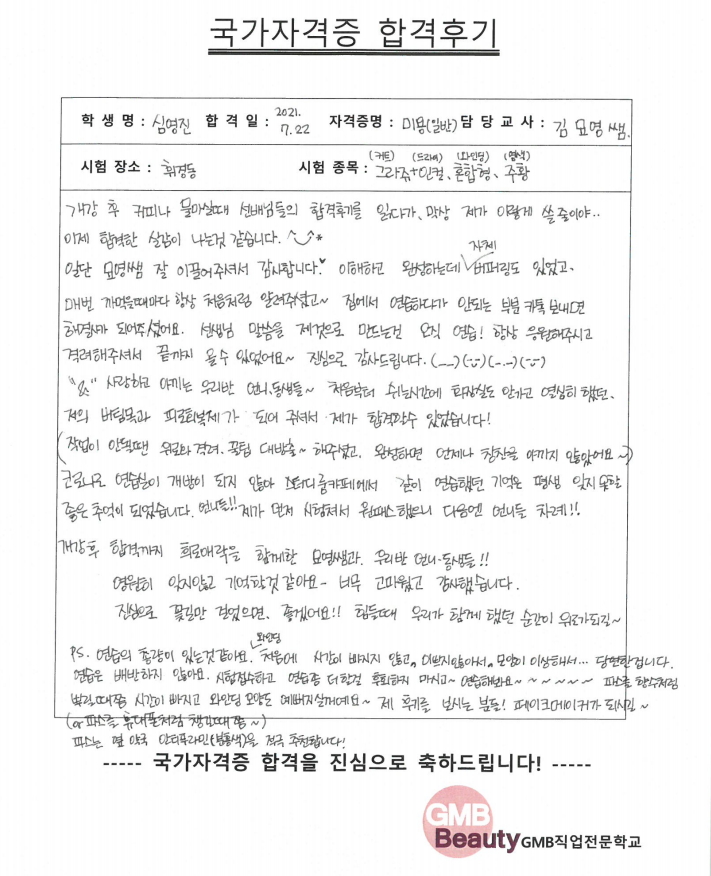 국가자격증 합격후기
학 생 명 : 심영진 합 격 일 : 2021. 7.22 자격증명 : 미용(일반) 담 당 교 사 : 김 묘영 쌤.
시험 장소 : 휘경동 시험 종목 : (커트) 그라쥬+ (드라이) 인컬, (와인딩) 혼합형, (염색) 주황
개강 후 커피나 물마실때 선배님들의 합격후기를 읽다가, 막상 제가 이렇게 쓸 줄이야..
이제 합격한 실감이 나는것 같습니다. ^◡^*
일단 묘영쌤 잘 이끌어주셔서 감사합니다.♥ 이해하고 완성하는데 자체 버퍼링도 있었고,
매번 까먹을때마다 항상 처음처럼 알려주셨고~ 집에서 연습하다가 안되는 부분 카톡 보내면
해결사가 되어주셨어요. 선생님 말씀을 제것으로 만드는건 오직 연습! 항상 응원해주시고
격려해주셔서 끝까지 올수 있었어요~ 진심으로 감사드립니다. (_ _)(:-)(-.-)(:-)
사랑하고 아끼는 우리반 언니,동생들~ 처음부터 쉬는시간에 화장실도 안가고 열심히 했던,
저의 버팀목과 피로회복제가 되어 주셔서 제가 합격할수 있었습니다!
(작업이 안될땐 위로와 격려, 꿀팁 대방출~ 해주셨고, 완성하면 언제나 칭찬을 아끼지 않았어요~)
코로나로 연습실이 개방이 되지 않아 스터디룸카페에서 같이 연습했던 기억은 평생 잊지못할
좋은 추억이 되었습니다. 언니들!! 제가 먼저 시험쳐서 원패스했으니 다음엔 언니들 차례!!
개강후 합격까지 희로애락을 함께한 묘영쌤과, 우리반 언니·동생들!!
영원히 잊지않고 기억할것 같아요~ 너무 고마웠고 감사했습니다.
진심으로 꽃길만 걸었으면, 좋겠어요!! 힘들때 우리가 함께 했던 순간이 위로가되길~
PS. 연습의 총량이 있는것같아요. 처음에 와인딩 시간이 빠지지 않고, 이쁘지않아서, 모양이 이상해서... 당연한겁니다.
연습은 배반하지 않아요. 시험접수하고 연습좀 더할걸 후회하지 마시고~ 연습해봐요~ ~ ~ ~ ~ ~ 파스를 향수처럼
뿌릴때쯤 시간이 빠지고 와인딩 모양도 예뻐지실거에요~ 제 후기를 보시는 분들! 페이크메이커가 되시길~
(or 파스를 휴대폰처럼 챙길때쯤~)
파스는 옆 약국 안티푸라민(분홍색)을 적극 추천합니다!
----- 국가자격증 합격을 진심으로 축하드립니다! -----
GMB
Beauty GMB직업전문학교